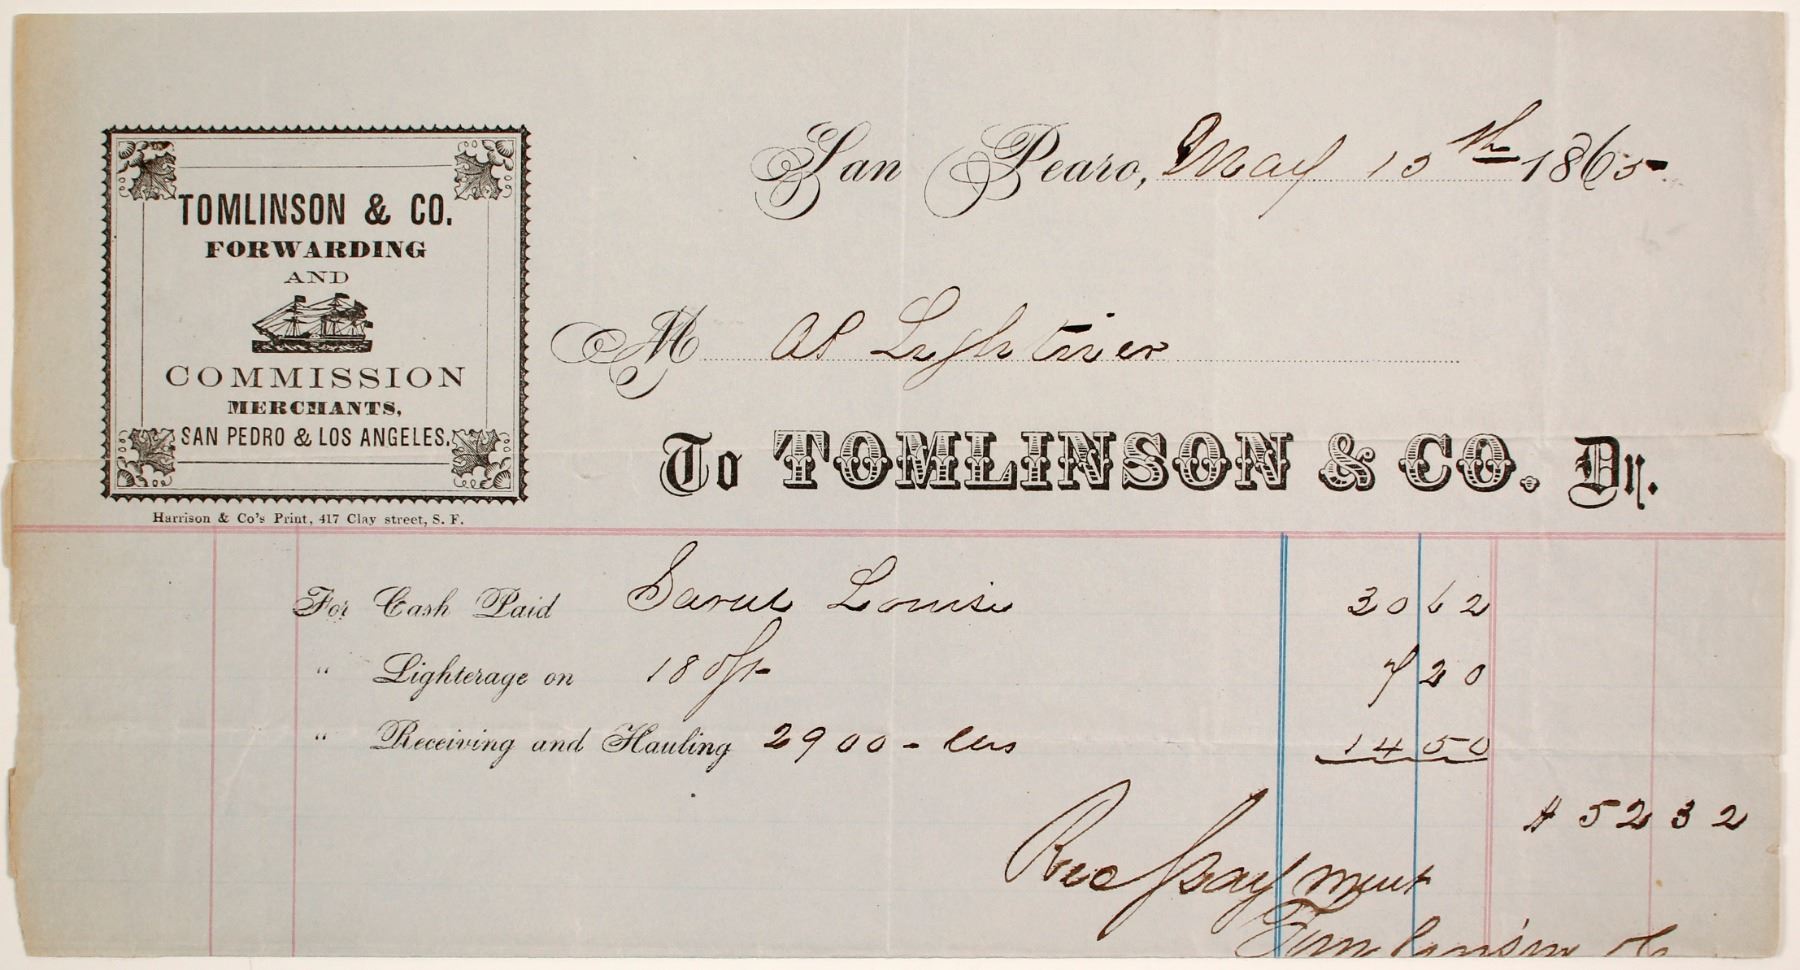 San Pedro, May 15th 1865
TOMLINSON & CO.
FORWARDING
AND
COMMISSION
MERCHANTS,
SAN PEDRO & LOS ANGELES.
Harrison & Co's Print, 417 Clay street, S. F.
M
To TOMLINSON & CO. Dr.
For Cash Paid Sarah Louise 30 62
" Lighterage on 180ft 7 20
" Receiving and Hauling 2900 - lbs 14 50
$ 52 32
Rec payment
Tomlinson & Co